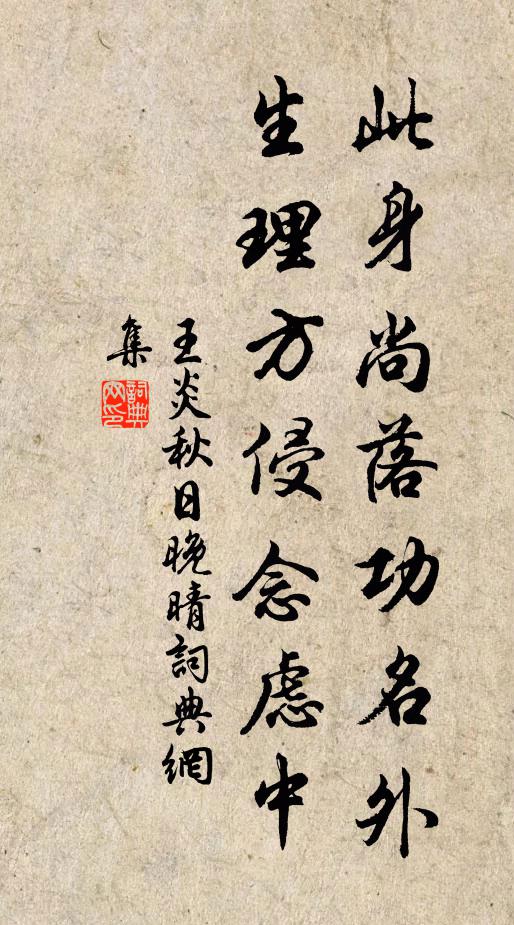 此身尚落功名外
生理方侵念慮中
王炎秋日晚晴詞典網
集
詞典網印